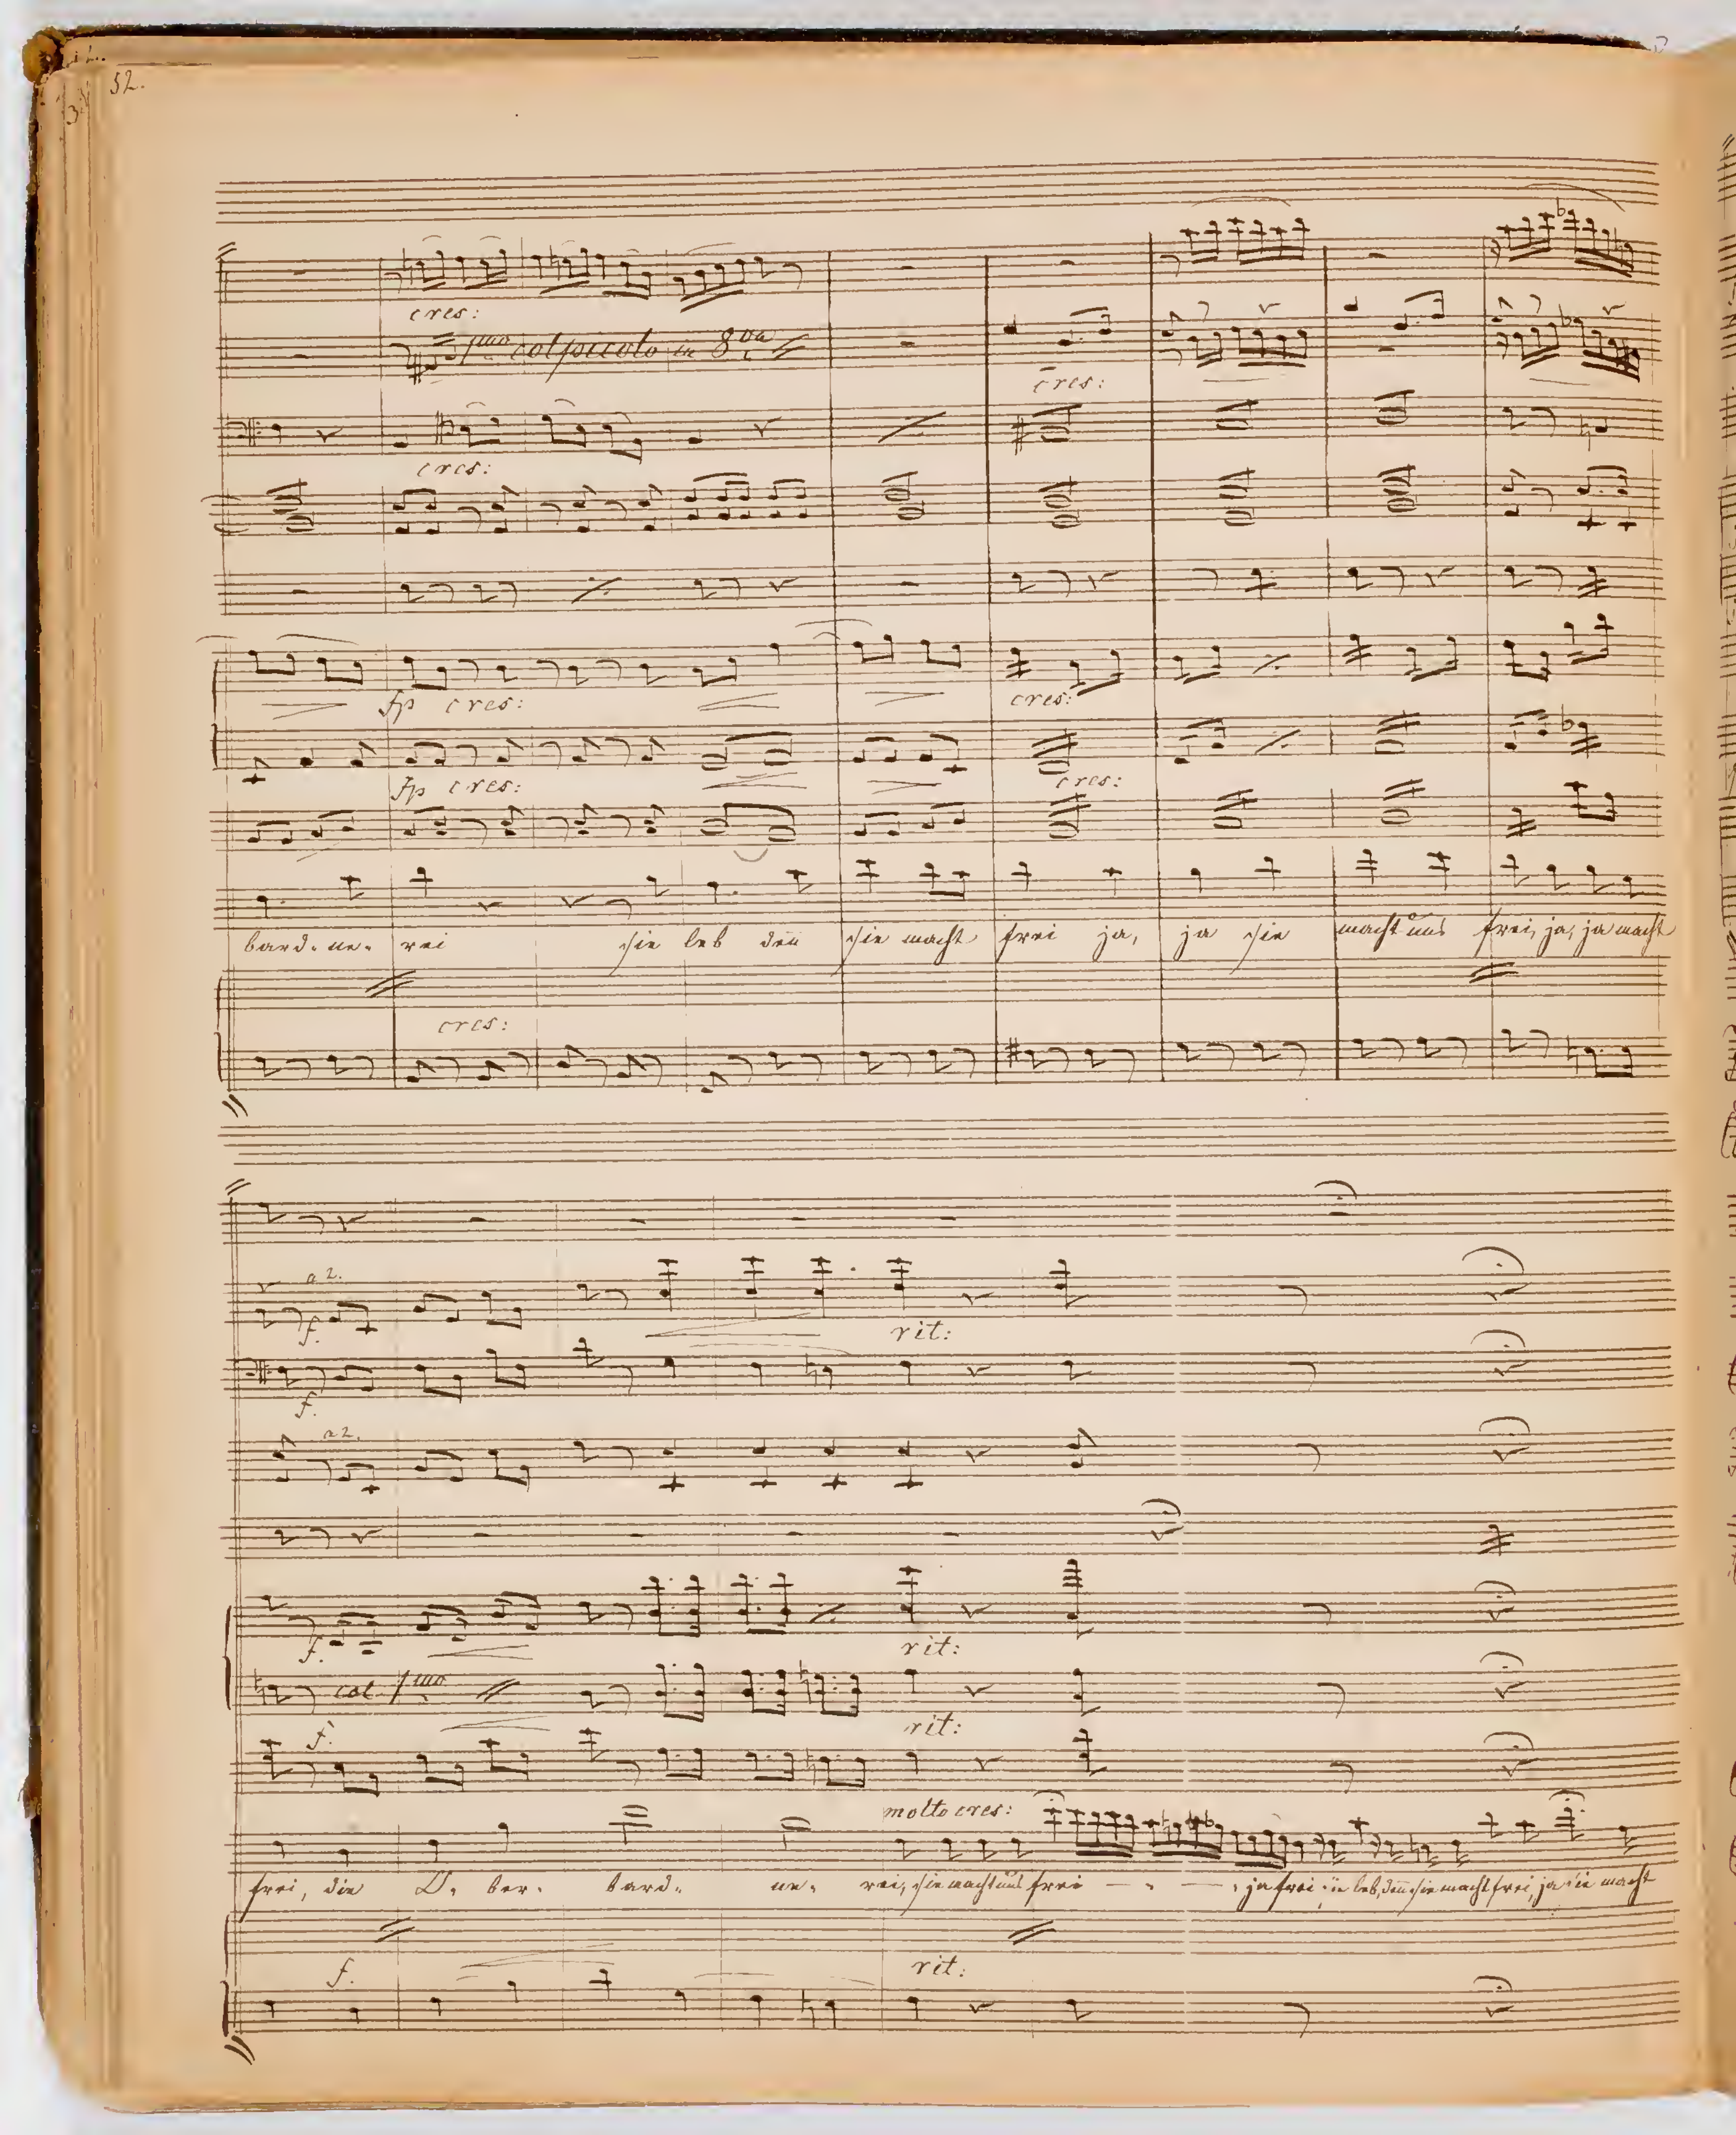 52.
cres:
1mo col piccolo in 8va
cres:
cres:
fp cres:
cres:
fp cres:
cres:
bard. ne. rei sie leb den sie macht frei ja, ja sie macht uns frei, ja, ja macht
cres:
a 2.
f.
rit:
f.
a 2.
f.
rit:
col 1mo
f.
rit:
molto cres:
frei, die O. ber. bard. ne. rei, sie macht uns frei ja frei leb, den sie macht frei, ja sie macht
f.
rit: